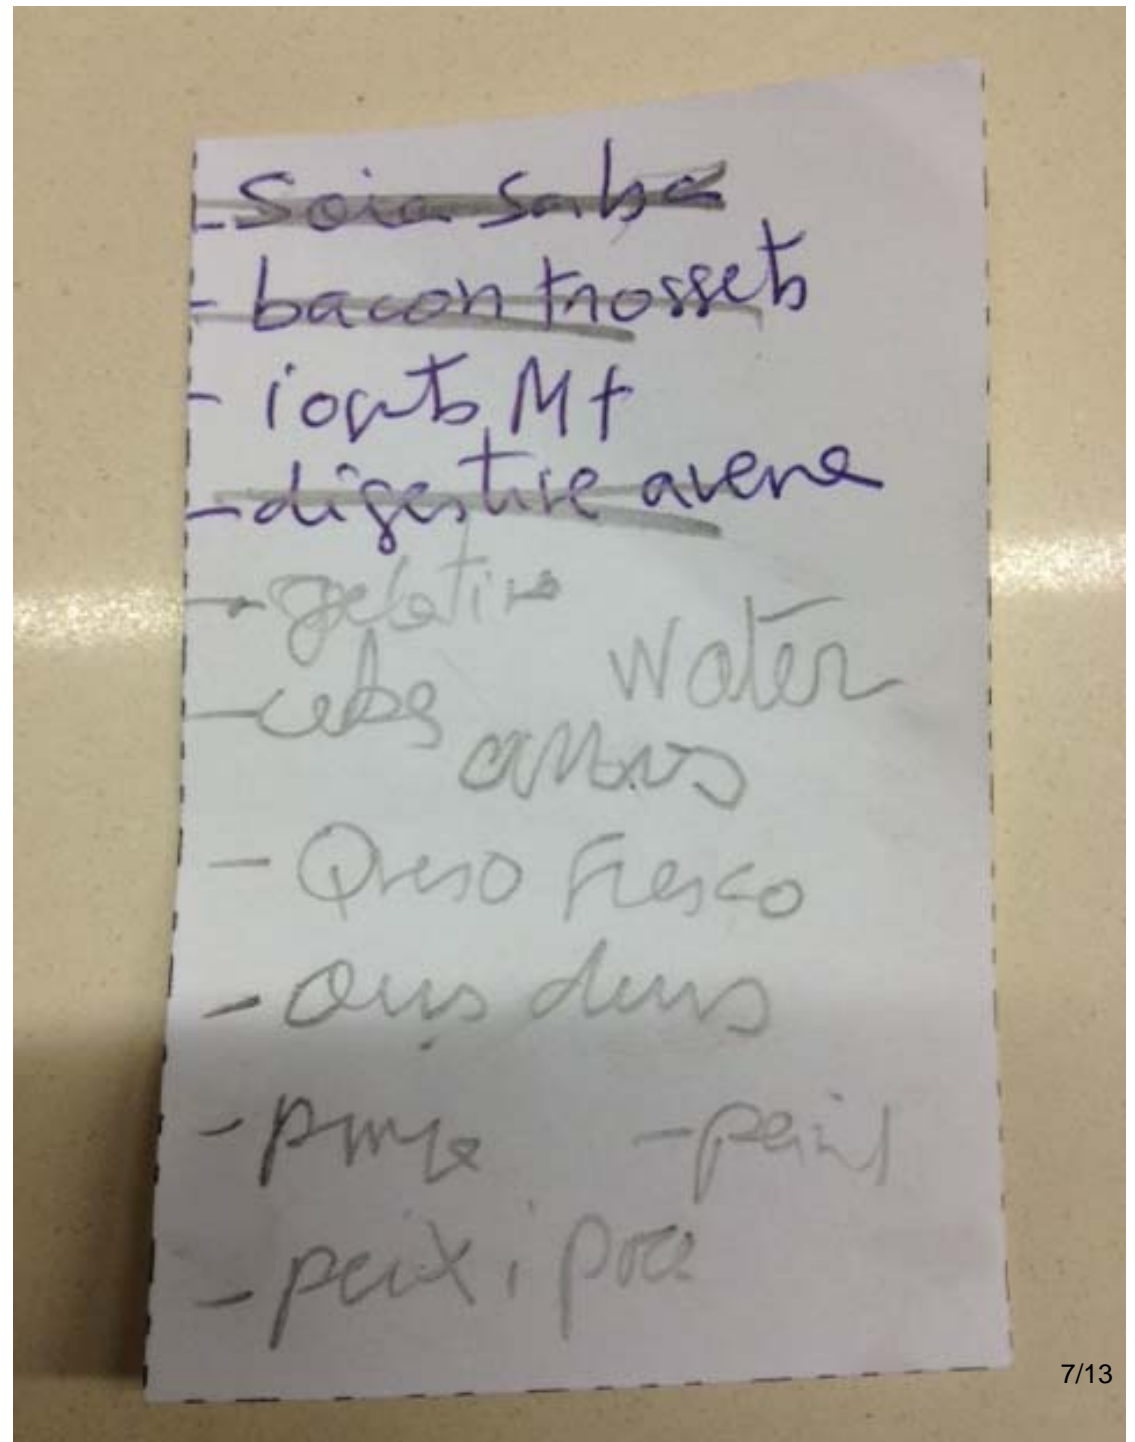 - Soia Salsa
- bacon trossets
- iogurts M+
- digestive avena
- gelatina
- ceba water
arros
- Queso Fresco
- ous durs
- - 
- peix i
7/13